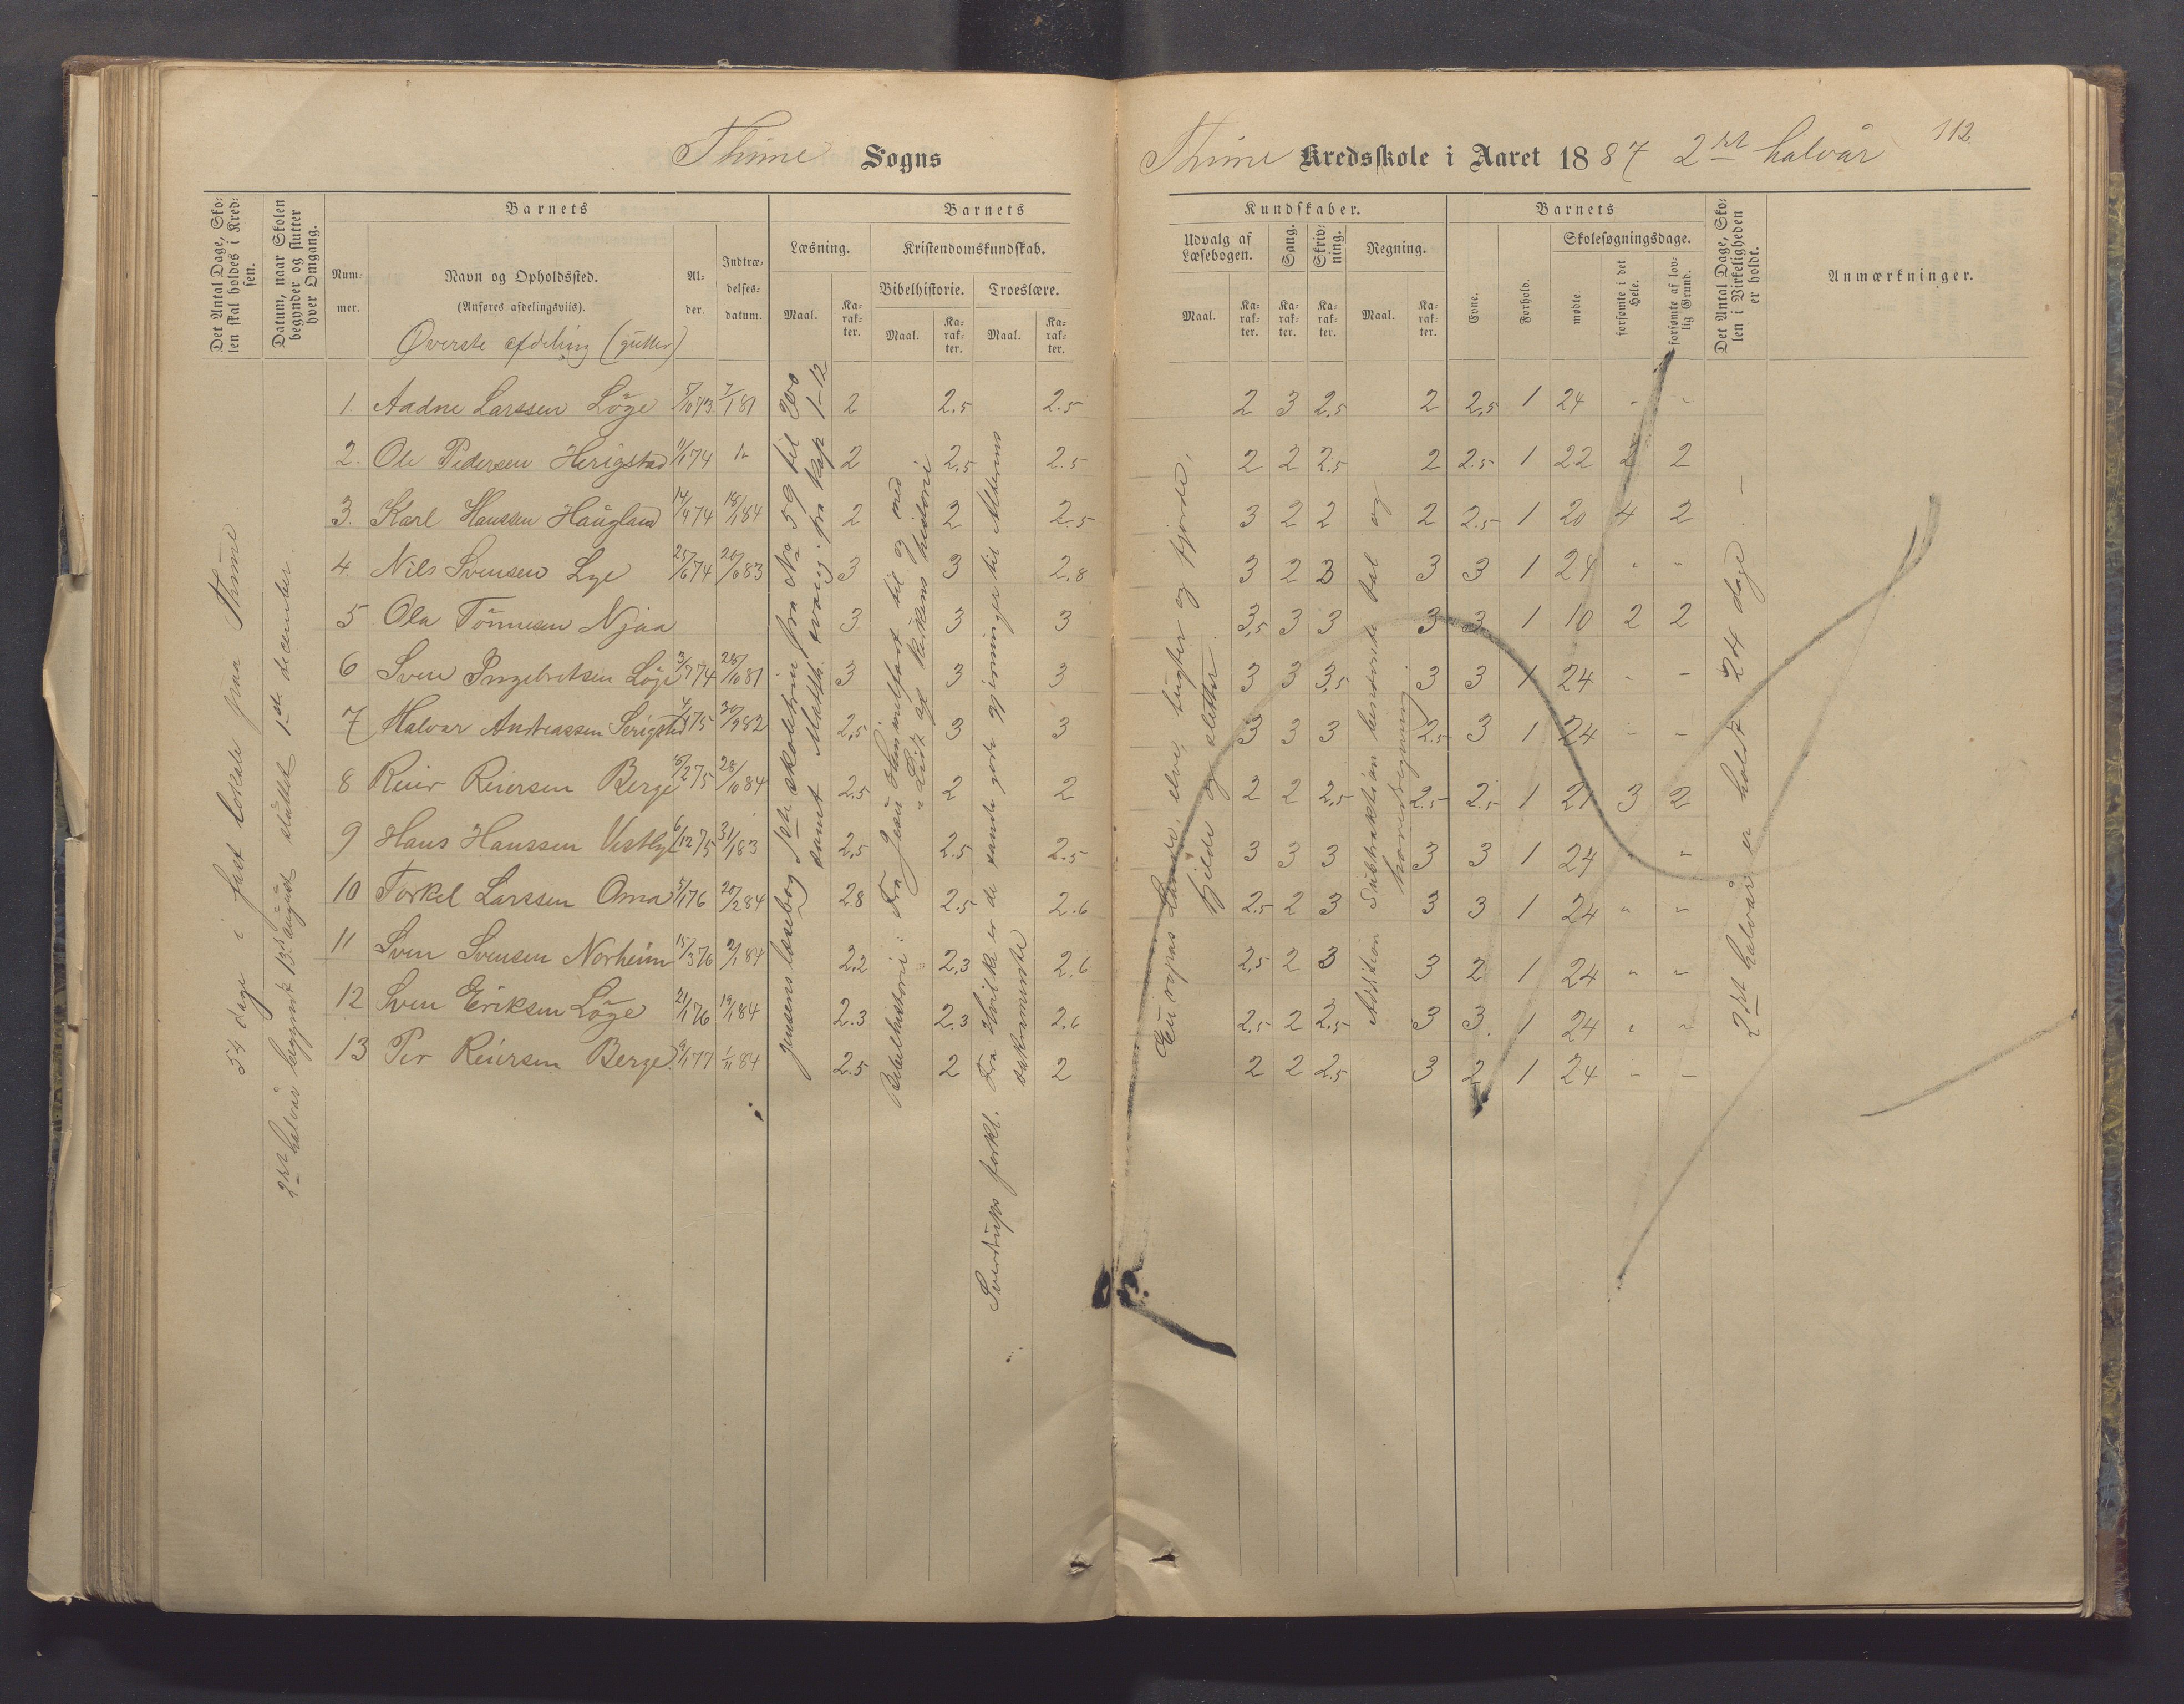 Thime Sogns
Thime Kredsskole i Aaret 1887 2det halvår
112.
Det Antal Dage, Sko-
len skal holdes i Kred-
sen.
Datum, naar Skolen
begynder og slutter
hver Omgang.
Barnets
Num-
mer.
Navn og Opholdssted.
(Anføres afdelingsviis).
Øverste afdeling (gutter)
Al-
der.
Indtræ-
delses-
datum.
Barnets
Læsning.
Maal.
Ka-
rak-
ter.
Kristendomskundskab.
Bibelhistorie.
Maal.
Ka-
rak-
ter.
Troeslære.
Maal.
Ka-
rak-
ter.
Kundskaber.
Udvalg af
Læsebogen.
Maal.
Ka-
rak-
ter.
Sang.
Ka-
rak-
ter.
Skriv-
ning.
Ka-
rak-
ter.
Regning.
Maal.
Ka-
rak-
ter.
Barnets
Evne.
Forhold.
Skolesøgningsdage.
mødte.
forsømte i det
Hele.
forsømte af lov-
lig Grund.
Det Antal Dage, Sko-
len i Virkeligheden
er holdt.
Anmærkninger.
54 dage i fast lokale paa Thime
2det halvår begyndt 13de august sluttet 1ste december.
Jensens læsebog 1ste skoletrin fra No 59 til 200
samt Matth. evang. fra Kap 1-12
Bibelhistorie: Fra Jesu Himmelfart til og med
Lidt af kirkens historie
Sverdrups forkl. Fra Hvilke er de sande gode gjerninger til Alterens
sakramente
Europas Lande, elve, bugter og fjorde,
fjelde og sletter.
Addition Subtraktion benævnte tal og
hovedregning
2det halvår er holdt 24 dage
1. Aadne Larssen Löge 5/10 73 7/1 81 2 2.5 2.5 2 3 2.5 2 2.5 1 24 " "
2. Ole Pedersen Herigstad 11/1 74 2 2.5 2.5 2 2 2.5 2 2.5 1 22 2 2
3. Karl Hanssen Haugland 14/4 74 18/1 84 2 2 2.5 3 2 2 2 2.5 1 20 4 2
4. Nils Svensen Lye 25/6 74 20/6 83 3 3 2.8 3 2 3 3 3 1 24 " "
5 Ola Tönnesen Njaa 3 3 3 3.5 3 3 3 3 1 10 2 2
6 Sven Ingebretsen Löge 3/7 74 28/10 81 3 3 3 3 3 3.5 3 3 1 24 - -
7 Halvar Andreassen 2.5 3 3 3 3 3 2.5 3 1 24 - -
8 Reier Reiersen Berge 8/2 75 28/10 84 2.5 2 2 2 2 2.5 2.5 2.5 1 21 3 2
9 Hans Hanssen Vestlye 6/12 75 31/1 83 2.5 2.5 2.5 3 3 3 3 3 1 24 " "
10 Torkel Larssen Oma 5/1 76 20/2 84 2.8 2.5 2.6 2.5 2 3 3 3 1 24 " "
11 Sven Svensen Norheim 15/3 76 2/1 84 2.2 2.3 2.6 2.5 2 3 3 2 1 24 " "
12 Sven Eriksen Löge 21/1 76 19/1 84 2.3 2.3 2.6 2.5 2 2.5 3 3. 1 24 " "
13 Per Reiersen Berge 9/1 77 1/11 84 2.5 2 2 2 2 2.5 3 2 1 24 - -